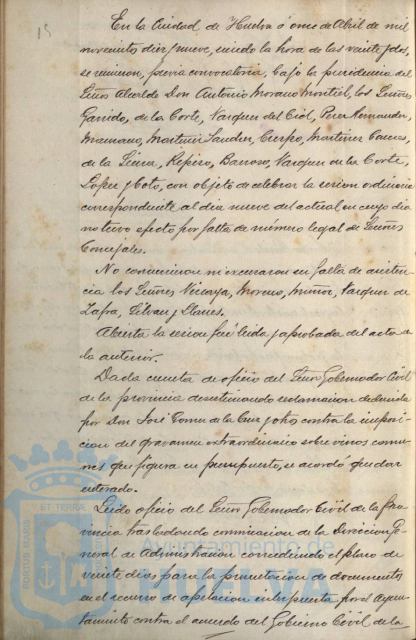 15
En la Ciudad de Huelva á once de Abril de mil
novecientos diez y nueve, siendo la hora de las veinte y dos,
se reunieron, previa convocatoria, bajo la presidencia del
Señor Alcalde Don Antonio Morano Montiel, los Señores
Garrido, de la Corte, Vazquez del Ciol, Perez Hernandez,
Mamano, Martinez Sanchez, Crespo, Martinez
de la Sierra, Repiso, Barroso, Vazquez de la Corte,
Lopez y Coto, con objeto de celebrar la sesion ordinaria
correspondiente al dia nueve del actual en cuyo dia
no tuvo efecto por falta de número legal de Señores
Concejales.
No concurrieron ni excusaron su falta de asisten-
cia los Señores Vizcaya, Moreno, Muñoz, Vazquez de
Zafra, y Llanes.
Abierta la sesion fué leida y aprobada del acta de
la anterior.
Dada cuenta de oficio del Señor Gobernador Civil
de la provincia desestimando reclamacion deducida
por Don José Gomez de la Cruz y otros contra la imposi-
cion del gravamen extraordinario sobre vinos comu-
nes que figura en presupuesto, se acordó quedar
enterado.
Leido oficio del Señor Gobernador Civil de la Pro-
vincia trasladando comunicacion de la Direccion Ge-
neral de Administracion concediendo el plazo de
veinte dias para la presentacion de documentos
en el recurso de apelacion interpuesto, por el Ayun-
tamiento contra el acuerdo del Gobierno Civil de la
PORTUS MARIS ET TERRAE CUSTODIA
Ayuntamiento de
HUELVA